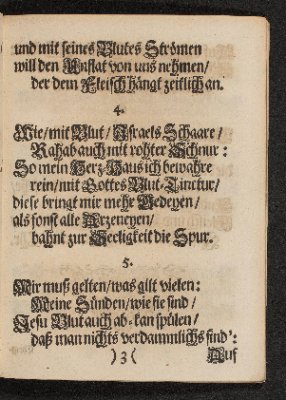 und mit seines Blutes Strömen
will den Unflat von uns nehmen/
der dem Fleisch hängt zeitlich an.
4.
Wie/mit Blut/Israels Schaare/
Rahab auch mit rohter Schnur:
So mein Herz-Haus ich bewahre
rein/mit Gottes Blut-Tinctur/
diese bringt mir mehr Gedeyen/
als sonst alle Arzeneyen/
bahnt zur Seeligkeit die Spur.
5.
Mir muß gelten/was gilt vielen:
Meine Sünden/wie sie sind/
Jesu Blut auch ab-kan spülen/
daß man nichts verdammlichs find':
)3(
Auf